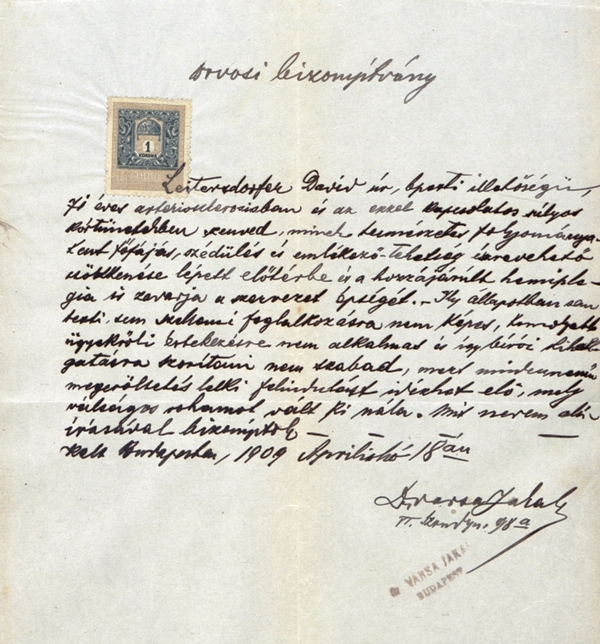 orvosi bizonyítvány
1
Leitersdorfer Dávid úr, eperjesi illetőségű,
71 éves arteriosclerosisban és az ezzel kapcsolatos súlyos
kórtünetekben szenved, minek természetes folyománya-
fejfájás, szédülés és emlékező-tehetség észrevehető
csökkenése lépett előtérbe és a hozzájárult hemiple-
gia is zavarja a szervezet épségét. - Ily állapotban sem
testi, sem szellemi foglalkozásra nem képes, komolyabb
ügyekröli értekezésre nem alkalmas és így bírói kihall-
gatásra szorítani nem szabad, mert mindennemű
megerőltetés lelki felindulást idézhet elő, mely
válságos rohamot vált ki nála. Mit nevem alá-
írásával bizonyítok
Kelt Budapesten, 1909 Április hó 18 án
Dr Varsa Jakab
98 a
Dr VARSA JAKAB
BUDAPEST